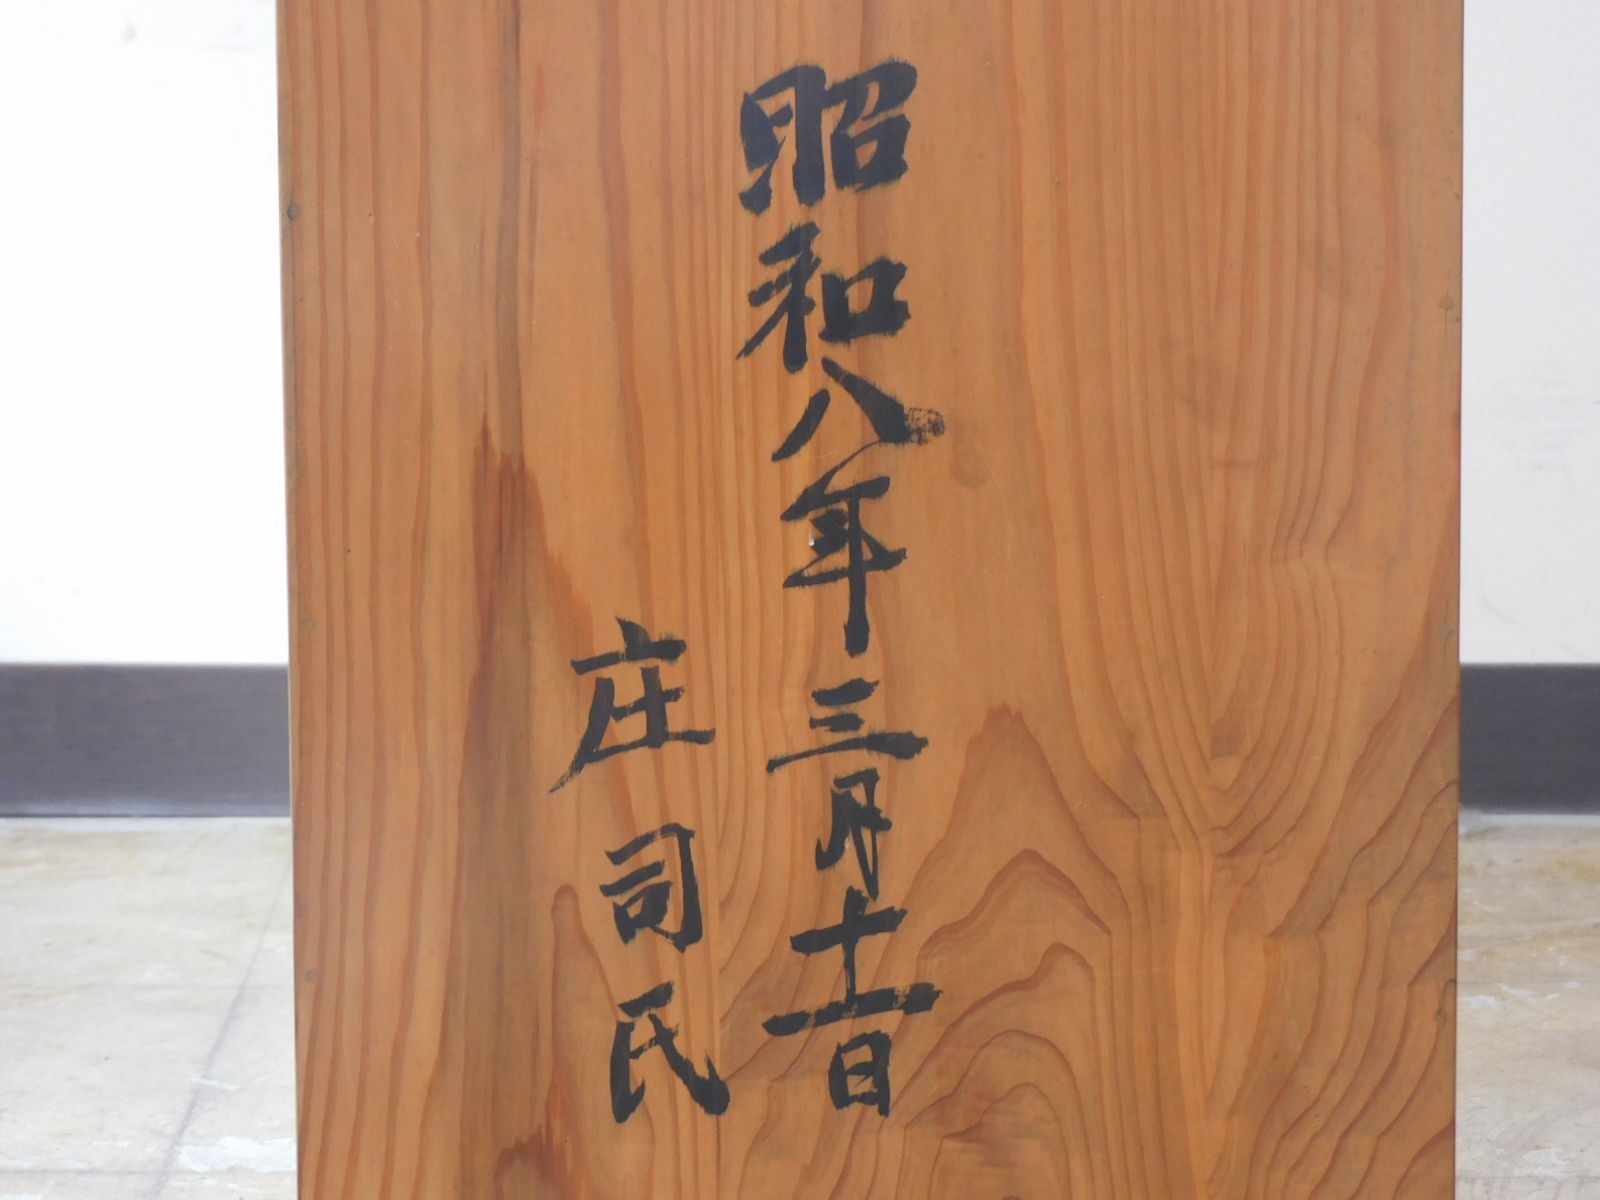 昭和八年三月十一日
庄司氏